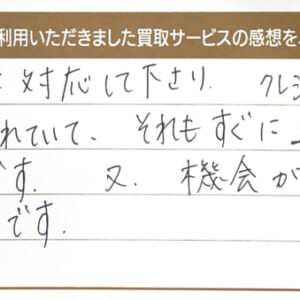 利用いただきました買取サービスの感想を
対応して下さり. クレジ
れていて、それもすぐに
です. 又. 機会が
です.